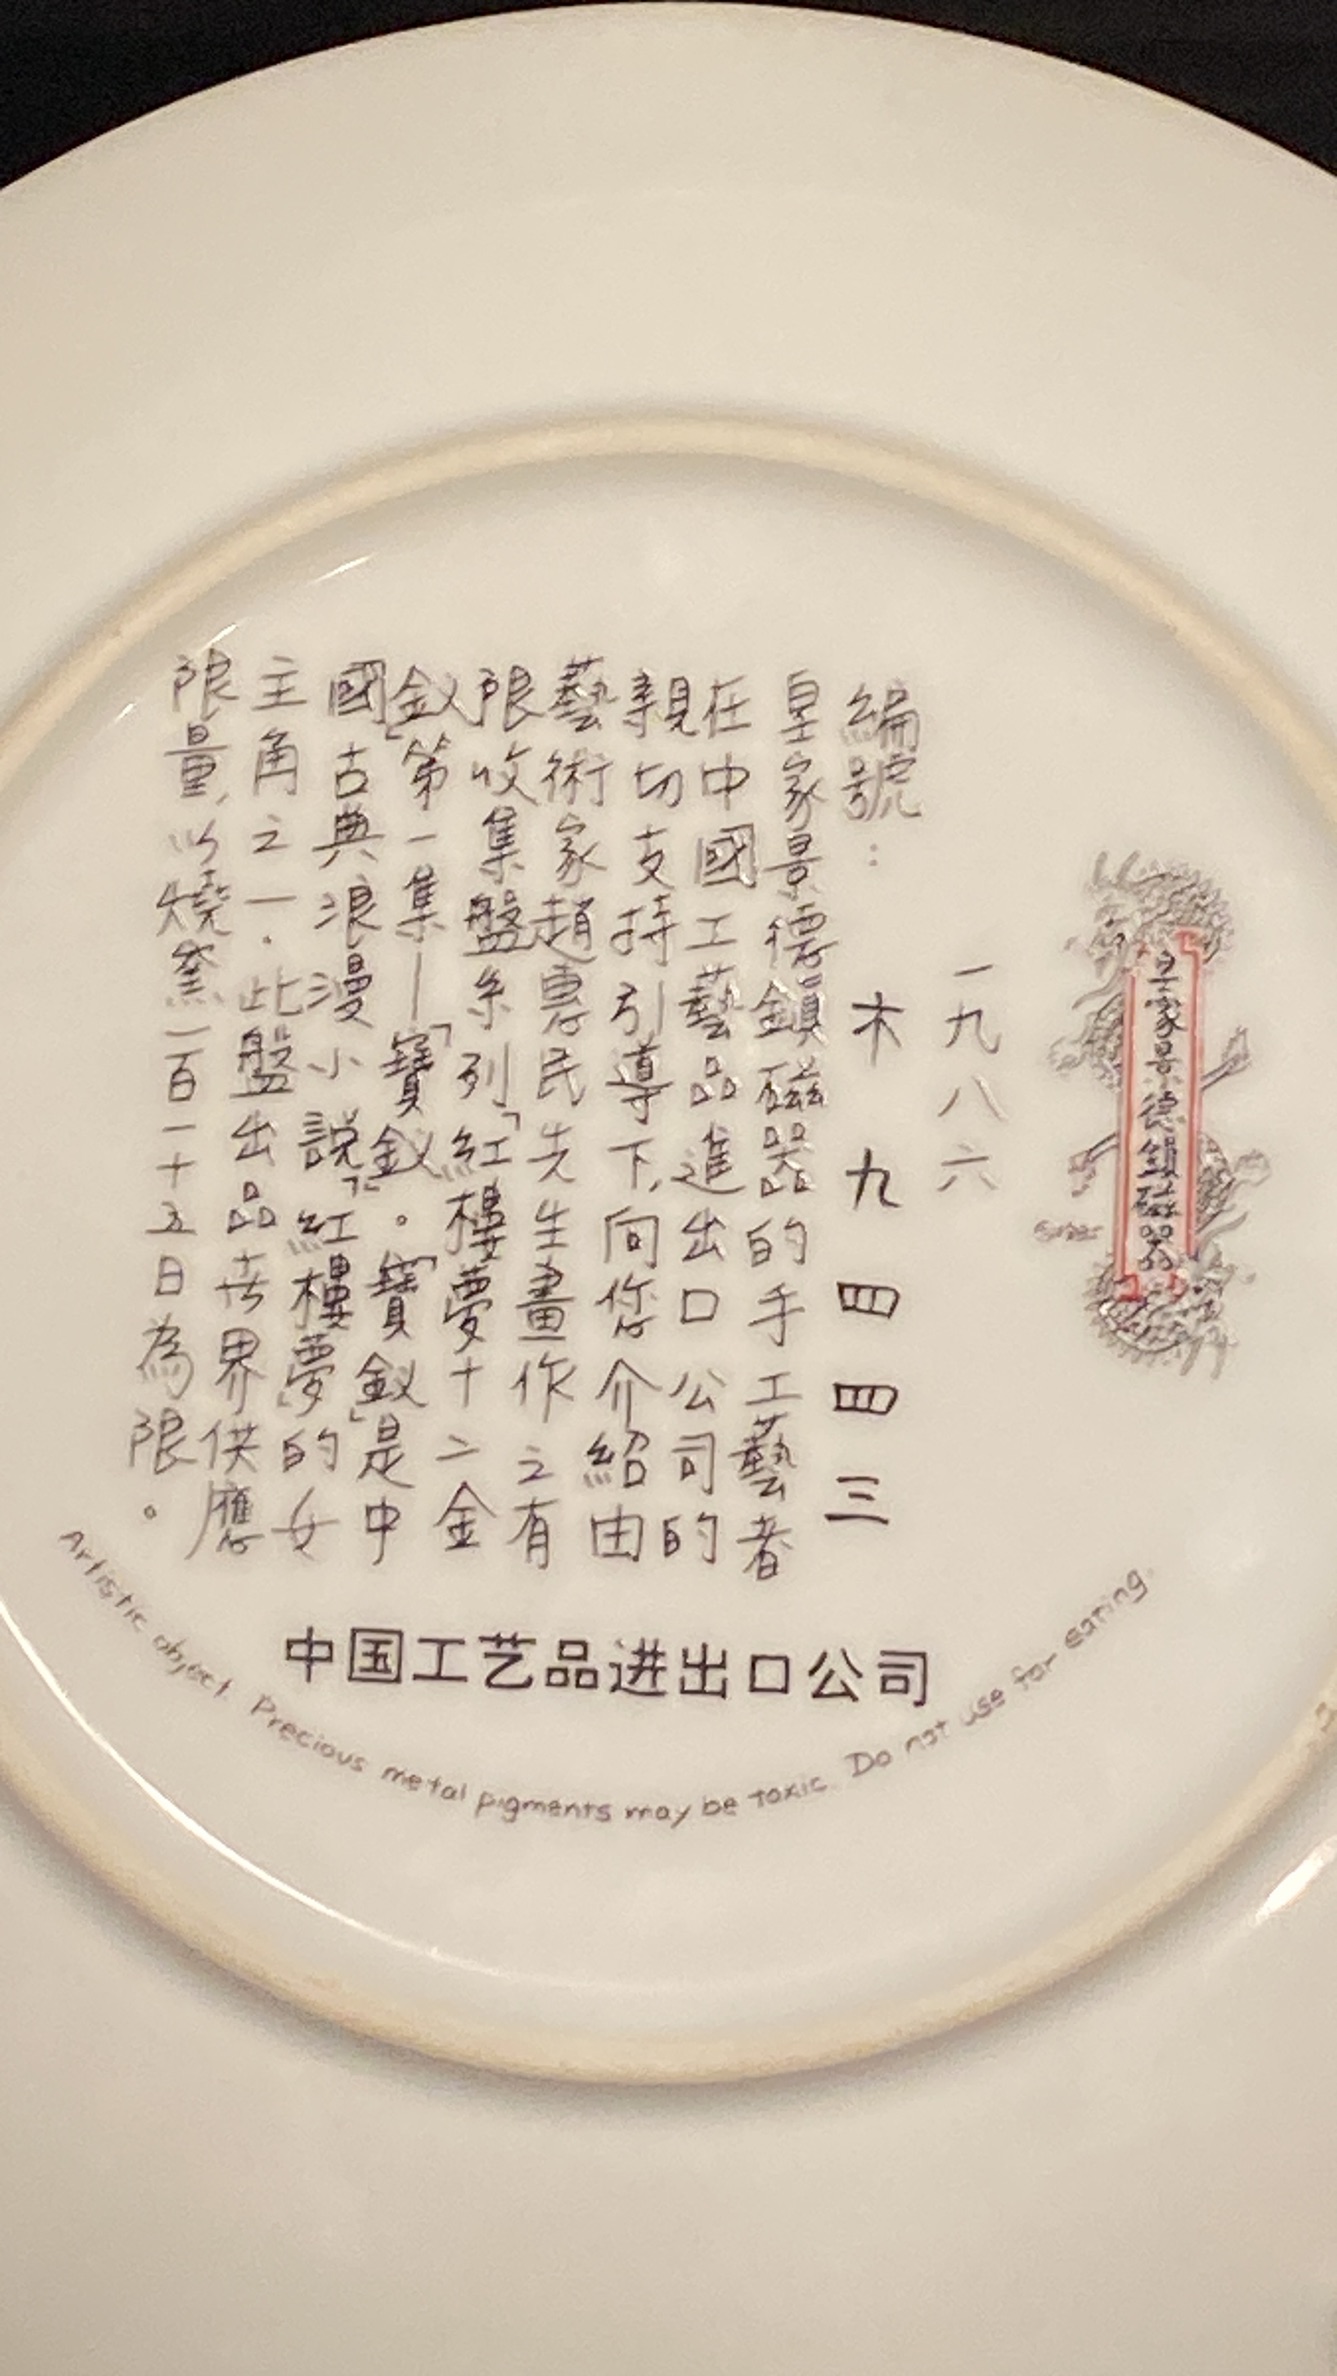 皇家景德鎮磁器
一九八六
編號：木九四四三
皇家景德鎮磁器的手工藝者
在中國工藝品進出口公司的
親切支持引導下，向您介紹由
藝術家趙惠民先生畫作之有
限收集盤系列「紅樓夢十二金
釵」第一集—「寶釵」。「寶釵」是中
國古典浪漫小說「紅樓夢」的女
主角之一．此盤出品世界供應
限量，以燒窯一百一十五日為限。
中国工艺品进出口公司
Artistic object. Precious metal pigments may be toxic. Do not use for eating.